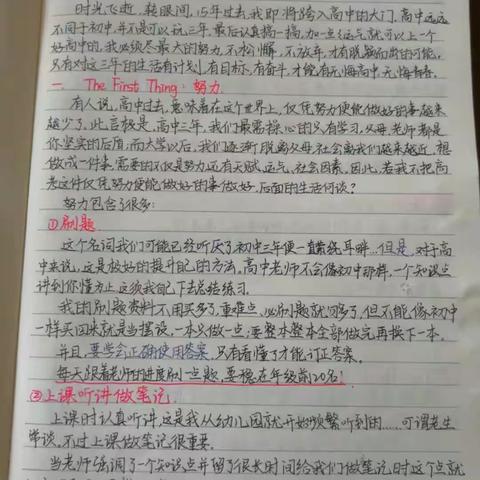 时光飞逝,转眼间,15年过去,我即将踏入高中的大门,高中远远
不同于初中,并不是可以玩三年,最后认真搞一搞,加一点运气就可以上一个
好高中的,我必须尽最大的努力,不松懈,不放弃,才有脱颖而出的可能,
只有对这三年的生活有计划,有目标,有奋斗,才能有无悔高中,无悔青春。
一、The First Thing:努力.
有人说,高中过去,意味着在这个世界上,仅凭努力便能做好的事越来
越少了,此言极是,高中三年,我们最需操心的只有学习,父母,老师都是
你坚实的后盾,而大学以后,我们逐渐脱离父母,社会离我们越来越近,想
做成一件事,需要的不仅是努力,还有天赋,运气,社会因素,因此,若我不把高
考这件仅凭努力便能做好的事做好,后面的生活何谈?
努力包含了很多:
①刷题
这个名词我们可能已经听厌了,初中三年便一直萦绕耳畔...但是,对于高
中来说,这是极好的提升自己的方法,高中老师不会像初中那样,一个知识点
讲到你懂为止,这须我自己下去总结练习。
我的刷题资料不用买多了,重难点、必刷题就够了,但不能像初中
一样买回来就是当摆设,一本只做一点;要整本整本全部做完再换下一本.
并且,要学会正确使用答案,只有看懂了才能订正答案。
每天跟着老师的进度刷一点题,要稳在年级前20名!
②上课听讲做笔记.
上课时认真听讲,这是我从幼儿园就开始频繁听到的.....可谓老生
常谈,不过上课做笔记很重要.
当老师强调了一个知识点并留了很长时间给我们做笔记时,这个点就